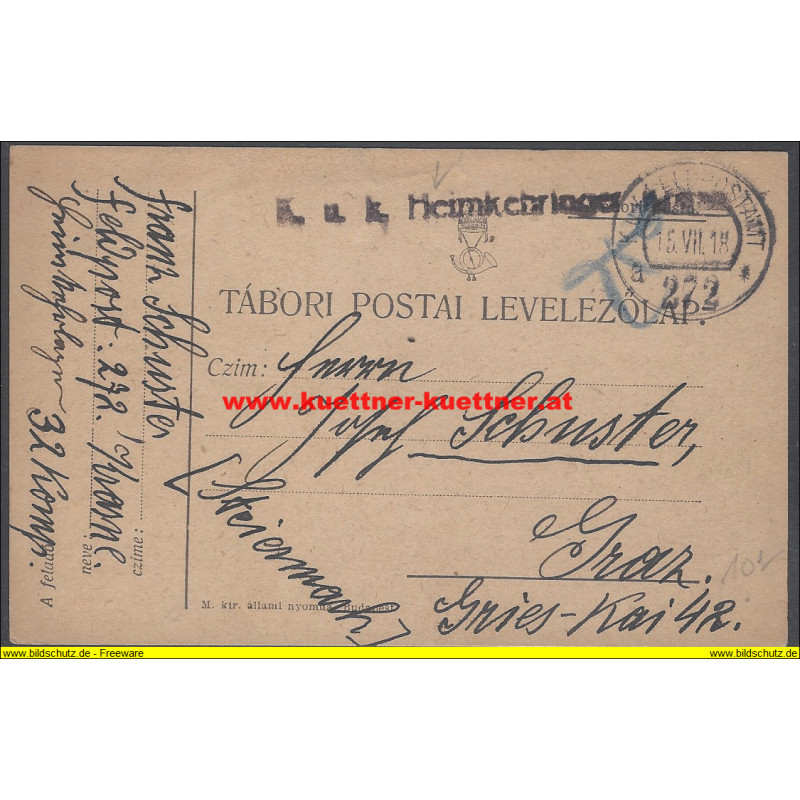 K. u. k. Heimkehringer
K. u. K. FELDPOSTAMT
15.VII.18
a 272 *
TÁBORI POSTAI LEVELEZŐLAP.
Czim: Herrn
www.kuettner-kuettner.at
Josef Schuster,
Graz.
Gries-Kai 42.
[Steiermark]
M. kir. állami nyomda, Budapest
10.-
Franz Schuster
Feldpost. 272.
32 Komp.
A feladó
neve:
czime:
www.bildschutz.de - Freeware
www.bildschutz.de